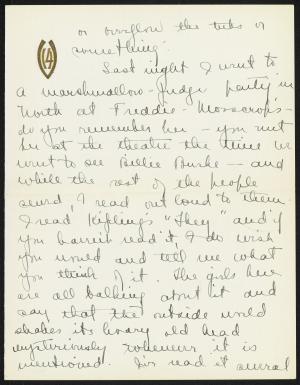 or overflow the tubs or
something.
14
Last night I went to
a marshmallow-fudge party in
North at Freddie Mosscrop's –
do you remember her – you met
her at the theatre the time we
went to see Billie Burke – and
while the rest of the people
sewed, I read out loud to them.
I read Kipling's "They" and if
you haven't read it, I do wish
you would and tell me what
you think of it. The girls here
are all talking about it and
say that the outside world
shakes its hoary old head
mysteriously whenever it is
mentioned. I've read it several